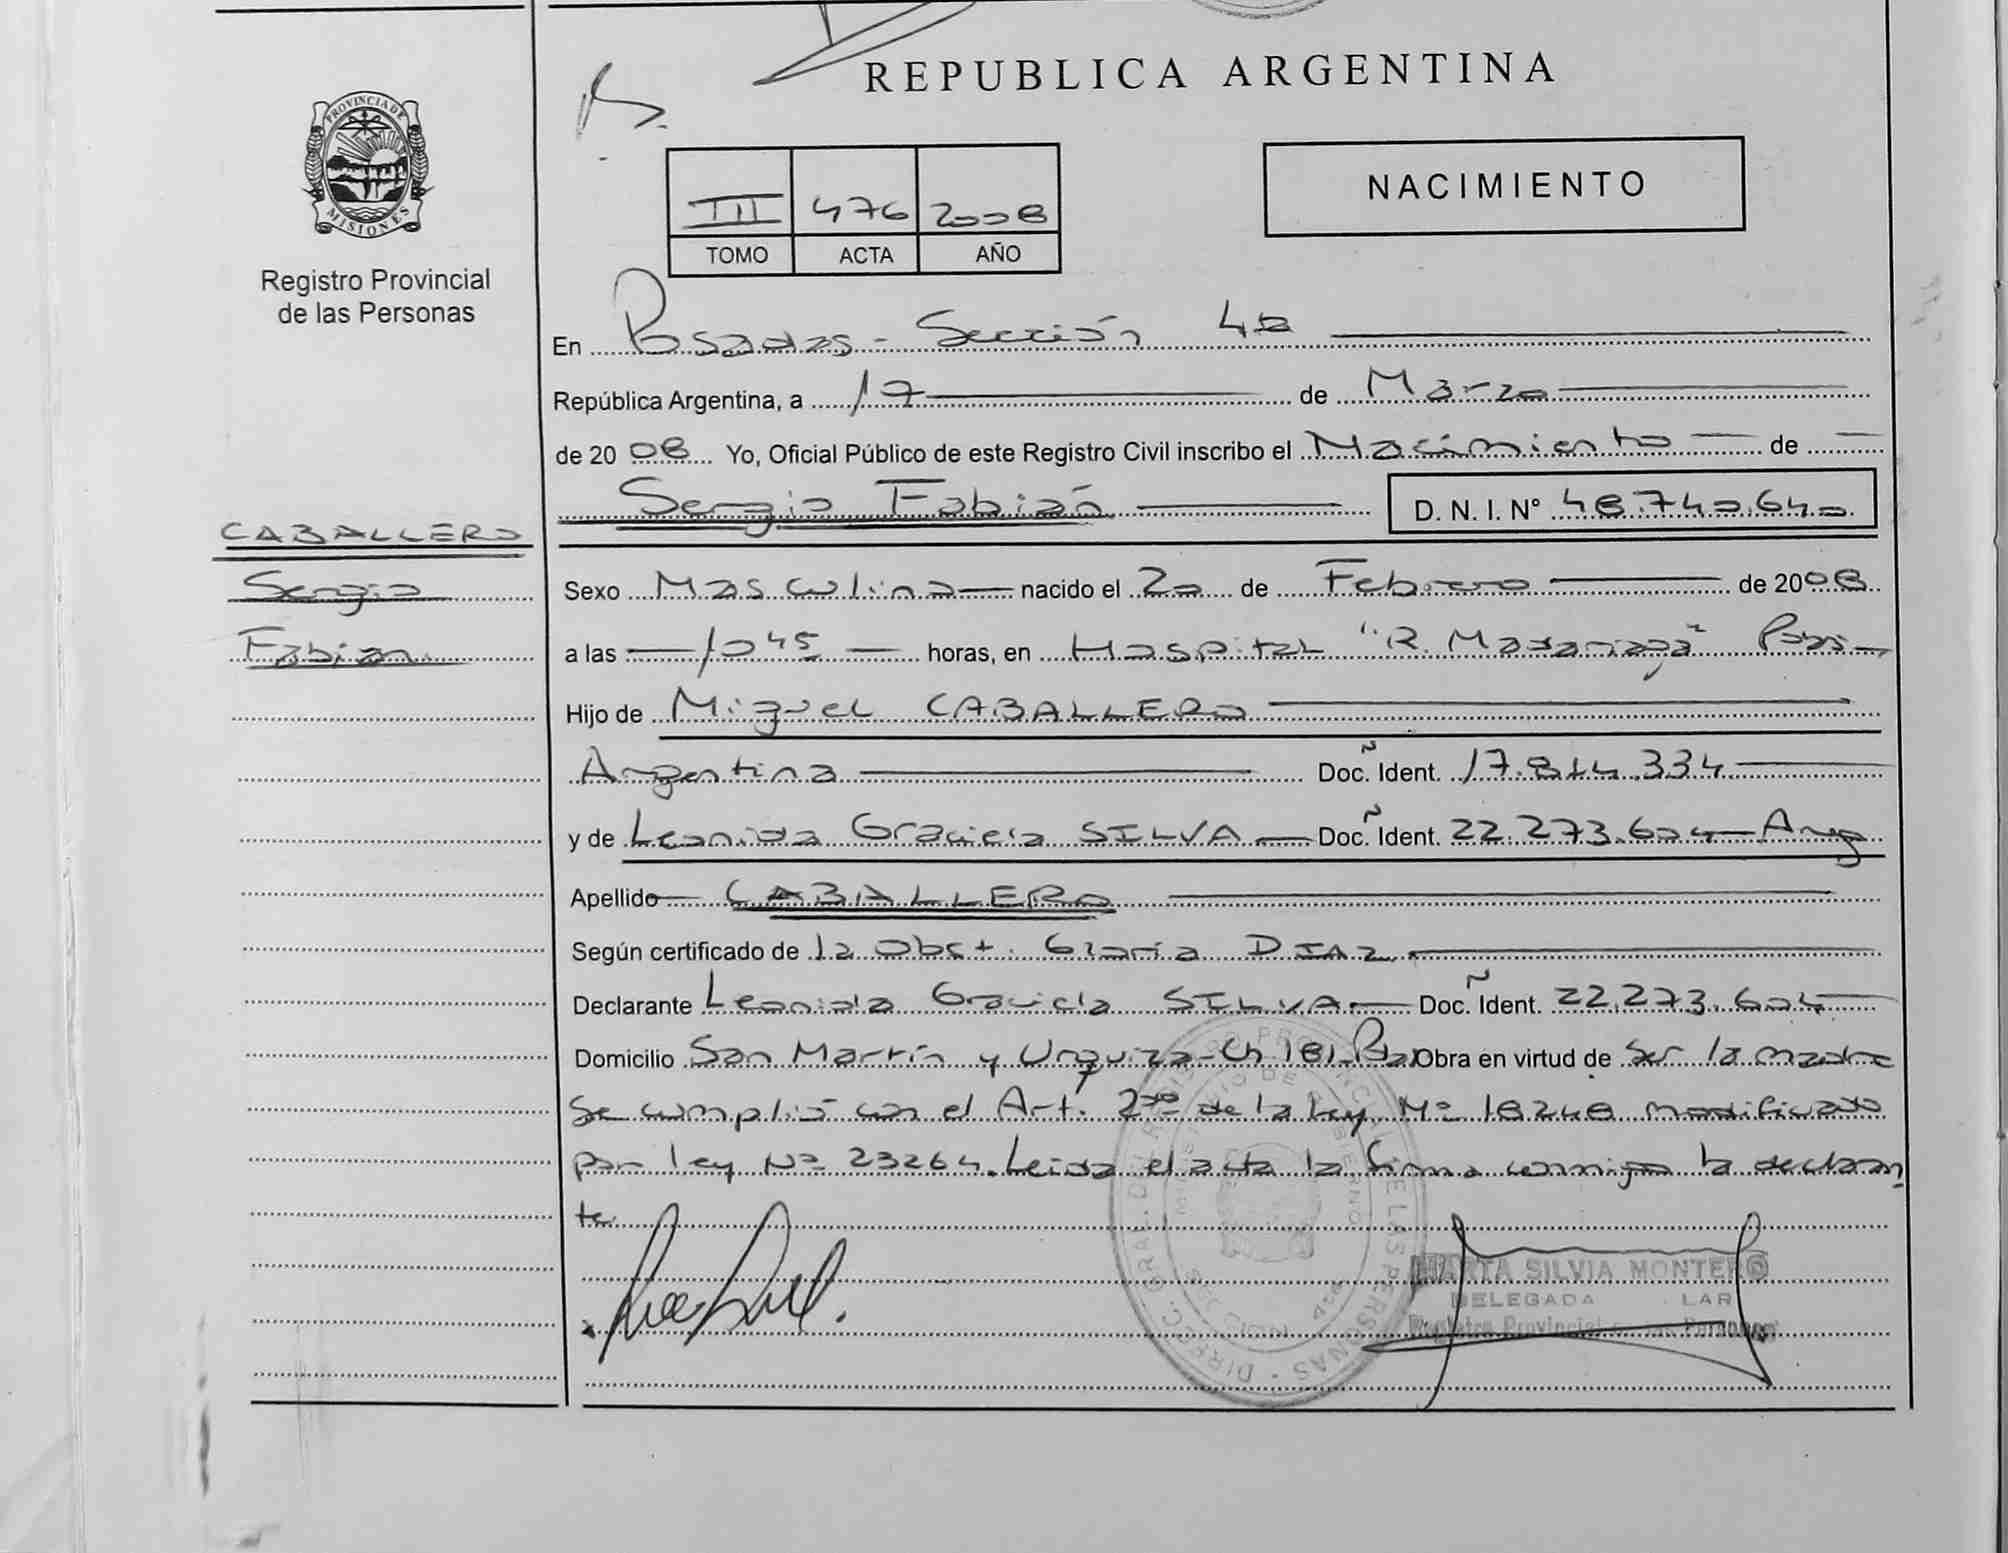 REPUBLICA ARGENTINA
PROVINCIA DE
MISIONES
Registro Provincial
de las Personas
III 476 2008
TOMO ACTA AÑO
NACIMIENTO
En Posadas - Sección 4ta
República Argentina, a 17 de Marzo
de 2008 Yo, Oficial Público de este Registro Civil inscribo el Nacimiento de
Sergio Fabián D. N. I. N° 48.740.640
CABALLERO
Sergio
Fabian
Sexo Masculino nacido el 20 de Febrero de 2008
a las 10 45 horas, en Hospital "R. Madariaga"
Hijo de Miguel CABALLERO
Argentina Doc. Ident. 17.814.334
y de Leonida Graciela SILVA Doc. Ident. 22.273.604 Arg
Apellido CABALLERO
Según certificado de la Obst. Gloria DIAZ
Declarante Leonida Graciela SILVA Doc. Ident. 22.273.604
Domicilio San Martín y Urquiza - Ch 181 Obra en virtud de ser la madre
Se cumplió con el Art. 2do de la Ley Nº 18248 modificado
por ley Nº 23264. Leida el acta la firma conmigo la declaran
te
MARTA SILVIA MONTERO
DELEGADA
Registro Provincial de las Personas
DIRECC. GRAL. DEL REGISTRO PROVINCIAL DE LAS PERSONAS
MINISTERIO DE GOBIERNO